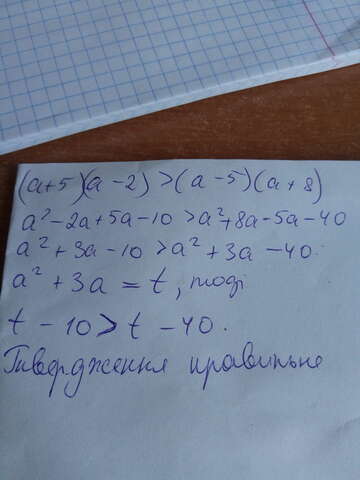 (a+5)(a-2)>(a-5)(a+8)
a²-2a+5a-10>a²+8a-5a-40
a²+3a-10>a²+3a-40.
a²+3a=t, тоді
t-10>t-40.
Твердження правильне